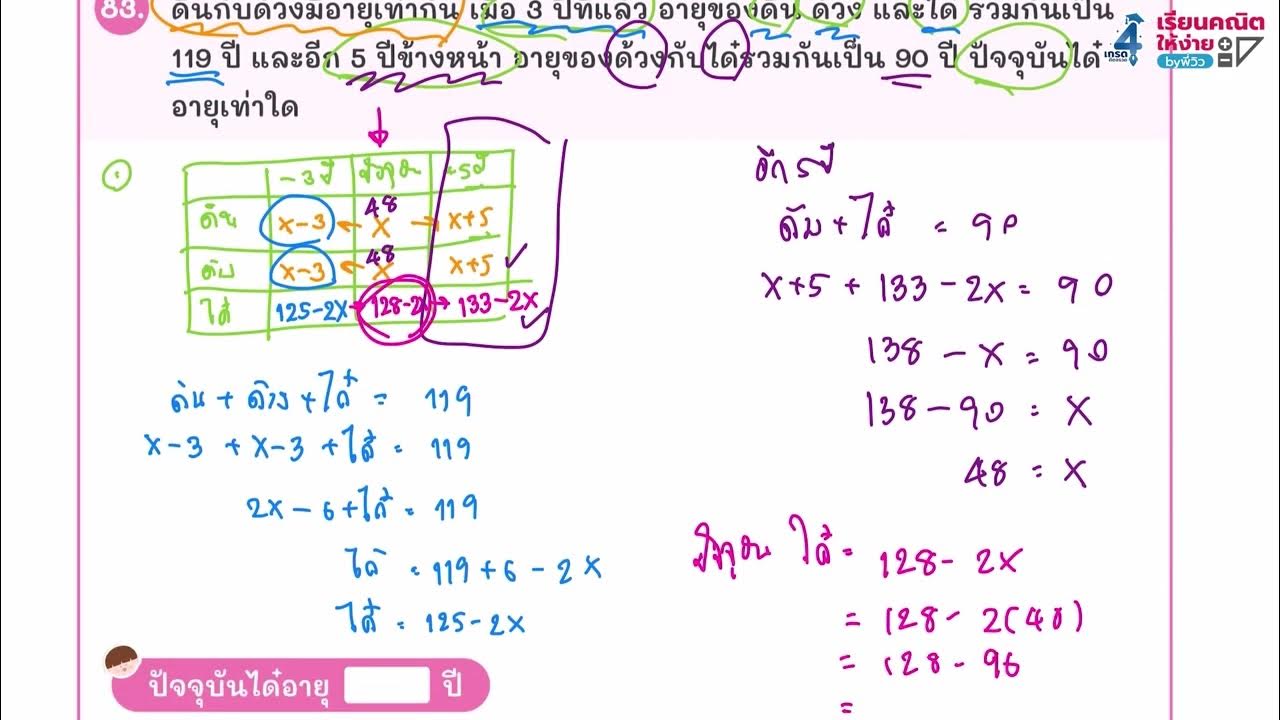 83. ต้นกับด้วงมีอายุเท่ากัน เมื่อ 3 ปีที่แล้ว อายุของต้น ด้วง และได๋ รวมกันเป็น
119 ปี และอีก 5 ปีข้างหน้า อายุของด้วงกับได๋รวมกันเป็น 90 ปี ปัจจุบันได๋
อายุเท่าใด
เรียนคณิต
ให้ง่าย
byพี่วิว
4
-3 ปี ปัจจุบัน +5ปี
48
x-3 ← x → x+5
48
x-3 ← x x+5
ได๋ 125-2x → 128-2x → 133-2x
ต้น + ด้วง + ได๋ = 119
x-3 + x-3 + ได๋ = 119
2x - 6 + ได๋ = 119
ได๋ = 119 + 6 - 2x
ได๋ = 125-2x
อีก 5 ปี
+ ได๋ = 90
x+5 + 133 - 2x = 90
138 - x = 90
138 - 90 = x
48 = x
ปัจจุบัน ได๋ = 128 - 2x
= 128 - 2(48)
= 128 - 96
=
ปัจจุบันได๋อายุ ปี